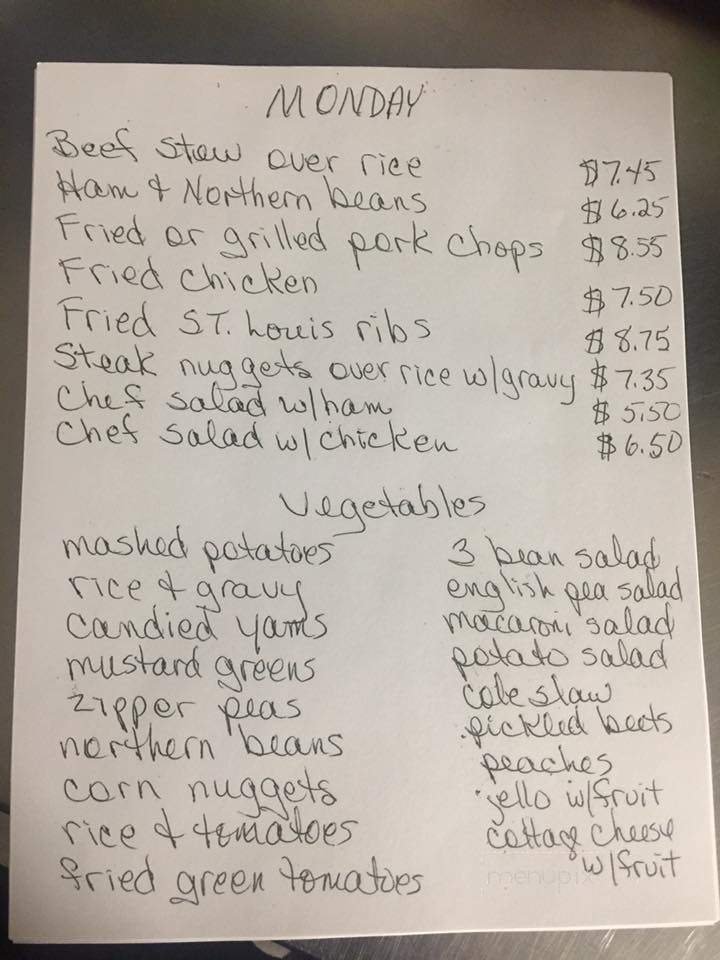 MONDAY
Beef stew over rice $7.45
Ham & Northern beans $6.25
Fried or grilled pork chops $8.55
Fried chicken $7.50
Fried ST. Louis ribs $8.75
Steak nuggets over rice w/gravy $7.35
Chef salad w/ham $5.50
Chef salad w/chicken $6.50
Vegetables
mashed potatoes
rice & gravy
candied yams
mustard greens
zipper peas
northern beans
corn nuggets
rice & tomatoes
fried green tomatoes
3 bean salad
english pea salad
macaroni salad
potato salad
cole slaw
pickled beets
peaches
jello w/fruit
cottage cheese
w/fruit
menupix